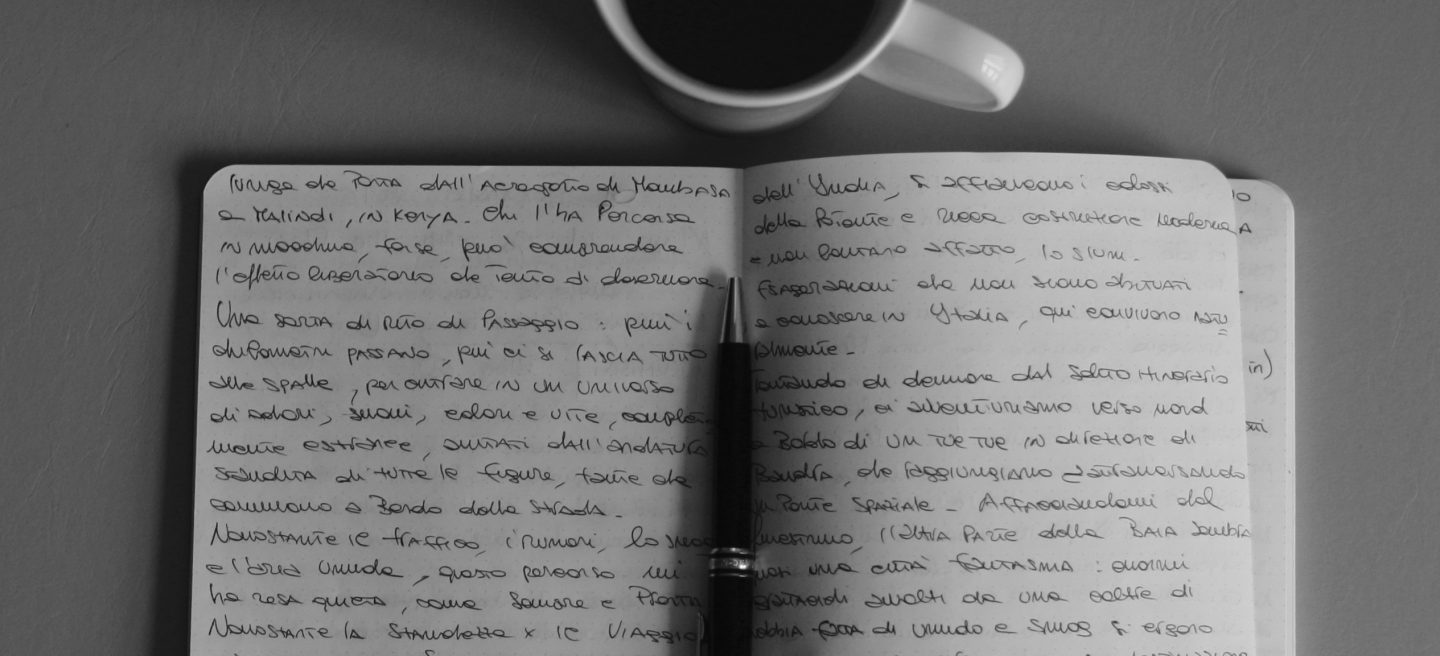 lunga che porta dall'aeroporto di Mombasa
a Malindi, in Kenya. Chi l'ha percorsa
in macchina, forse, può comprendere
l'effetto liberatorio che tento di descrivere.
Una sorta di rito di passaggio: qui i
chilometri passano, qui ci si lascia tutto
alle spalle, per entrare in un universo
di odori, suoni, colori e vite, completa
mente estranee, scanditi dall'andatura
di tutte le figure, tante che
camminano a bordo della strada.
Nonostante il traffico, i rumori, lo smog
e l'aria umida, questo percorso mi
ha resa quieta, come sempre e pronta
Nonostante la stanchezza x il viaggio
dell'India, si affiancano i colossi
della potente e ricca costruzione moderna
e non lontano affatto, lo slum.
Esagerazioni che non siamo abituati
a conoscere in Italia, qui convivono natu
ralmente.
Tentando di deviare dal solito itinerario
turistico, ci avventuriamo verso nord
a bordo di un tuc tuc in direzione di
Bandra, che raggiungiamo attraversando
un ponte spaziale. Affacciandomi dal
finestrino, l'altra parte della baia sembra
una città fantasma: enormi
grattacieli avvolti da una coltre di
nebbia fatta di umido e smog si ergono